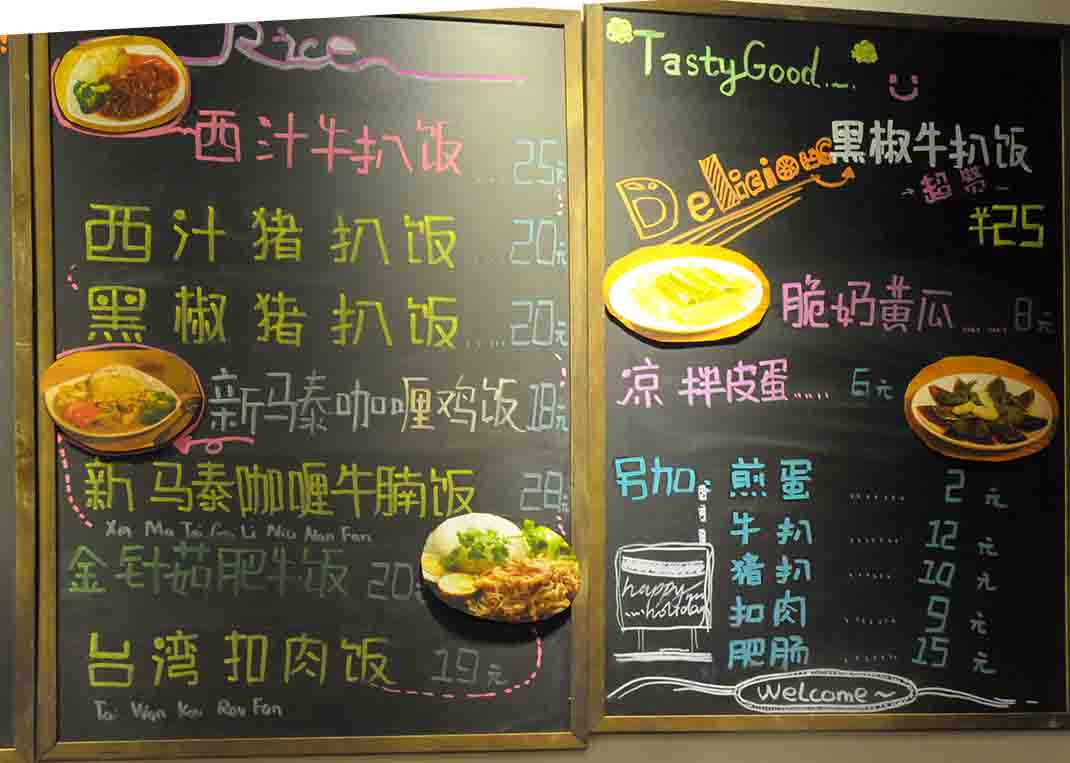 Rice
西汁牛扒饭 .... 25元
西汁猪扒饭 20元
黑椒猪扒饭 ..... 20元
新马泰咖喱鸡饭 18元
新马泰咖喱牛腩饭 28元
Xin Ma Tai Ga Li Niu Nan Fan
金针茹肥牛饭 20元
台湾扣肉饭 19元
Tai Wan Kou Rou Fan
TastyGood....
Delicious
黑椒牛扒饭
超赞
¥25
脆奶黄瓜 ...... 8元
凉拌皮蛋 ..... 6元
另加、煎蛋 ...... 2元
牛扒 ...... 12元
猪扒 ...... 10元
扣肉 ...... 9元
肥肠 ...... 15元
happy
holiday
Welcome~